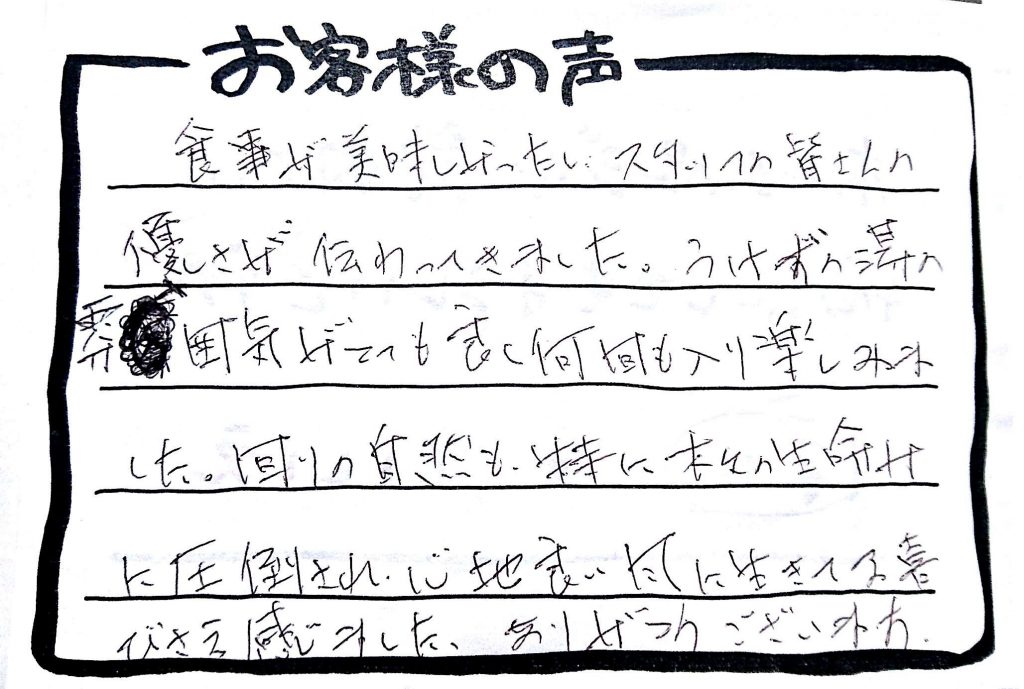 お客様の声
食事が美味しかったし、スタッフの皆さんの
優しさが伝わってきました。うけずの湯の
雰囲気がとても良く何回も入り楽しみま
した。回りの自然も、特に木々の生命力
に圧倒され、心地良い風に生きてる喜
びさえ感じました、ありがとうございました。